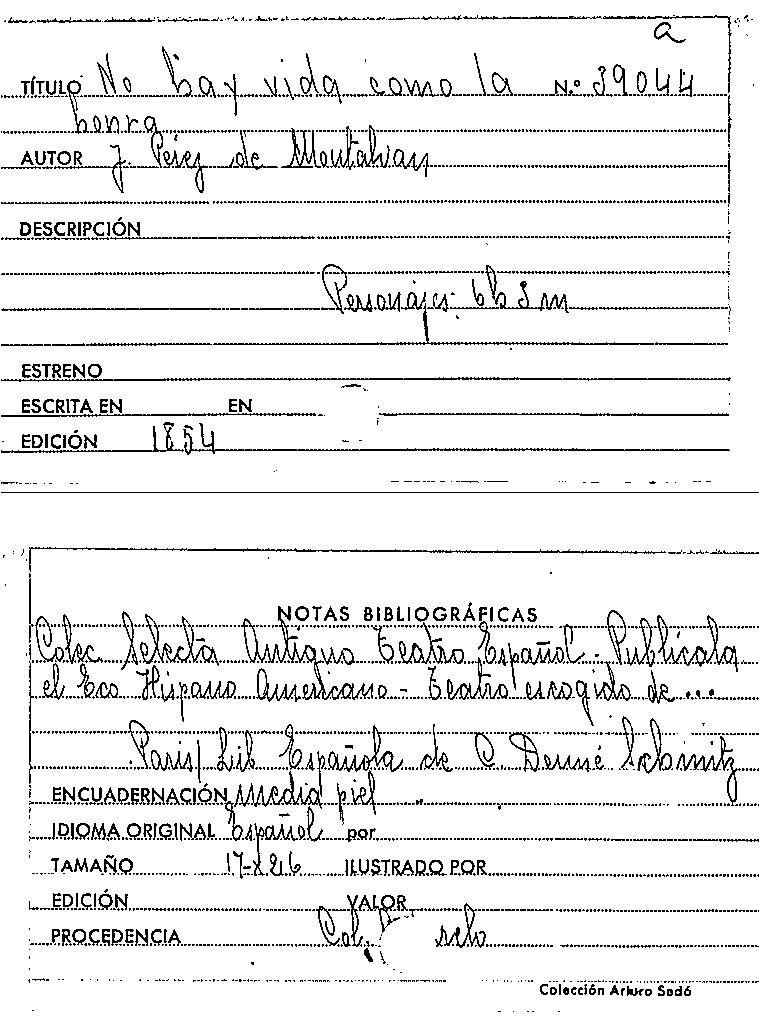 a
TÍTULO No hay vida como la N.º 39044
honra
AUTOR J. Perez de Montalvan
DESCRIPCIÓN
Personajes: 6h 3m
ESTRENO
ESCRITA EN EN
EDICIÓN 1854
NOTAS BIBLIOGRÁFICAS
Colec. Selecta Antiguo Teatro Español - Publícala
el Eco Hispano Americano - Teatro escogido de ...
Paris, Lib Española de C. Denné Schmitz
ENCUADERNACIÓN media piel
IDIOMA ORIGINAL Español por
TAMAÑO 17 x 26 ILUSTRADO POR
EDICIÓN VALOR
PROCEDENCIA Col.
Colección Arturo Sedó